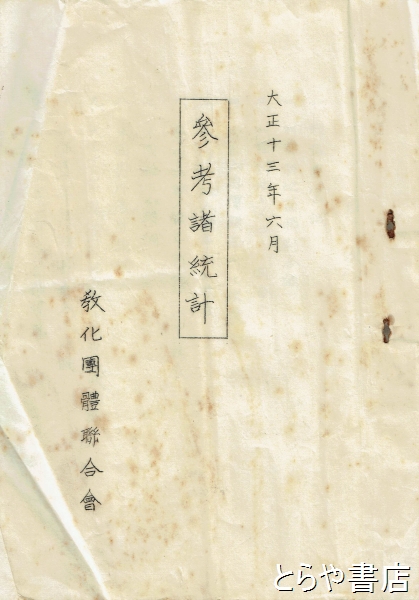 大正十三年六月
參考諸統計
敎化團體聯合會
とらや書店